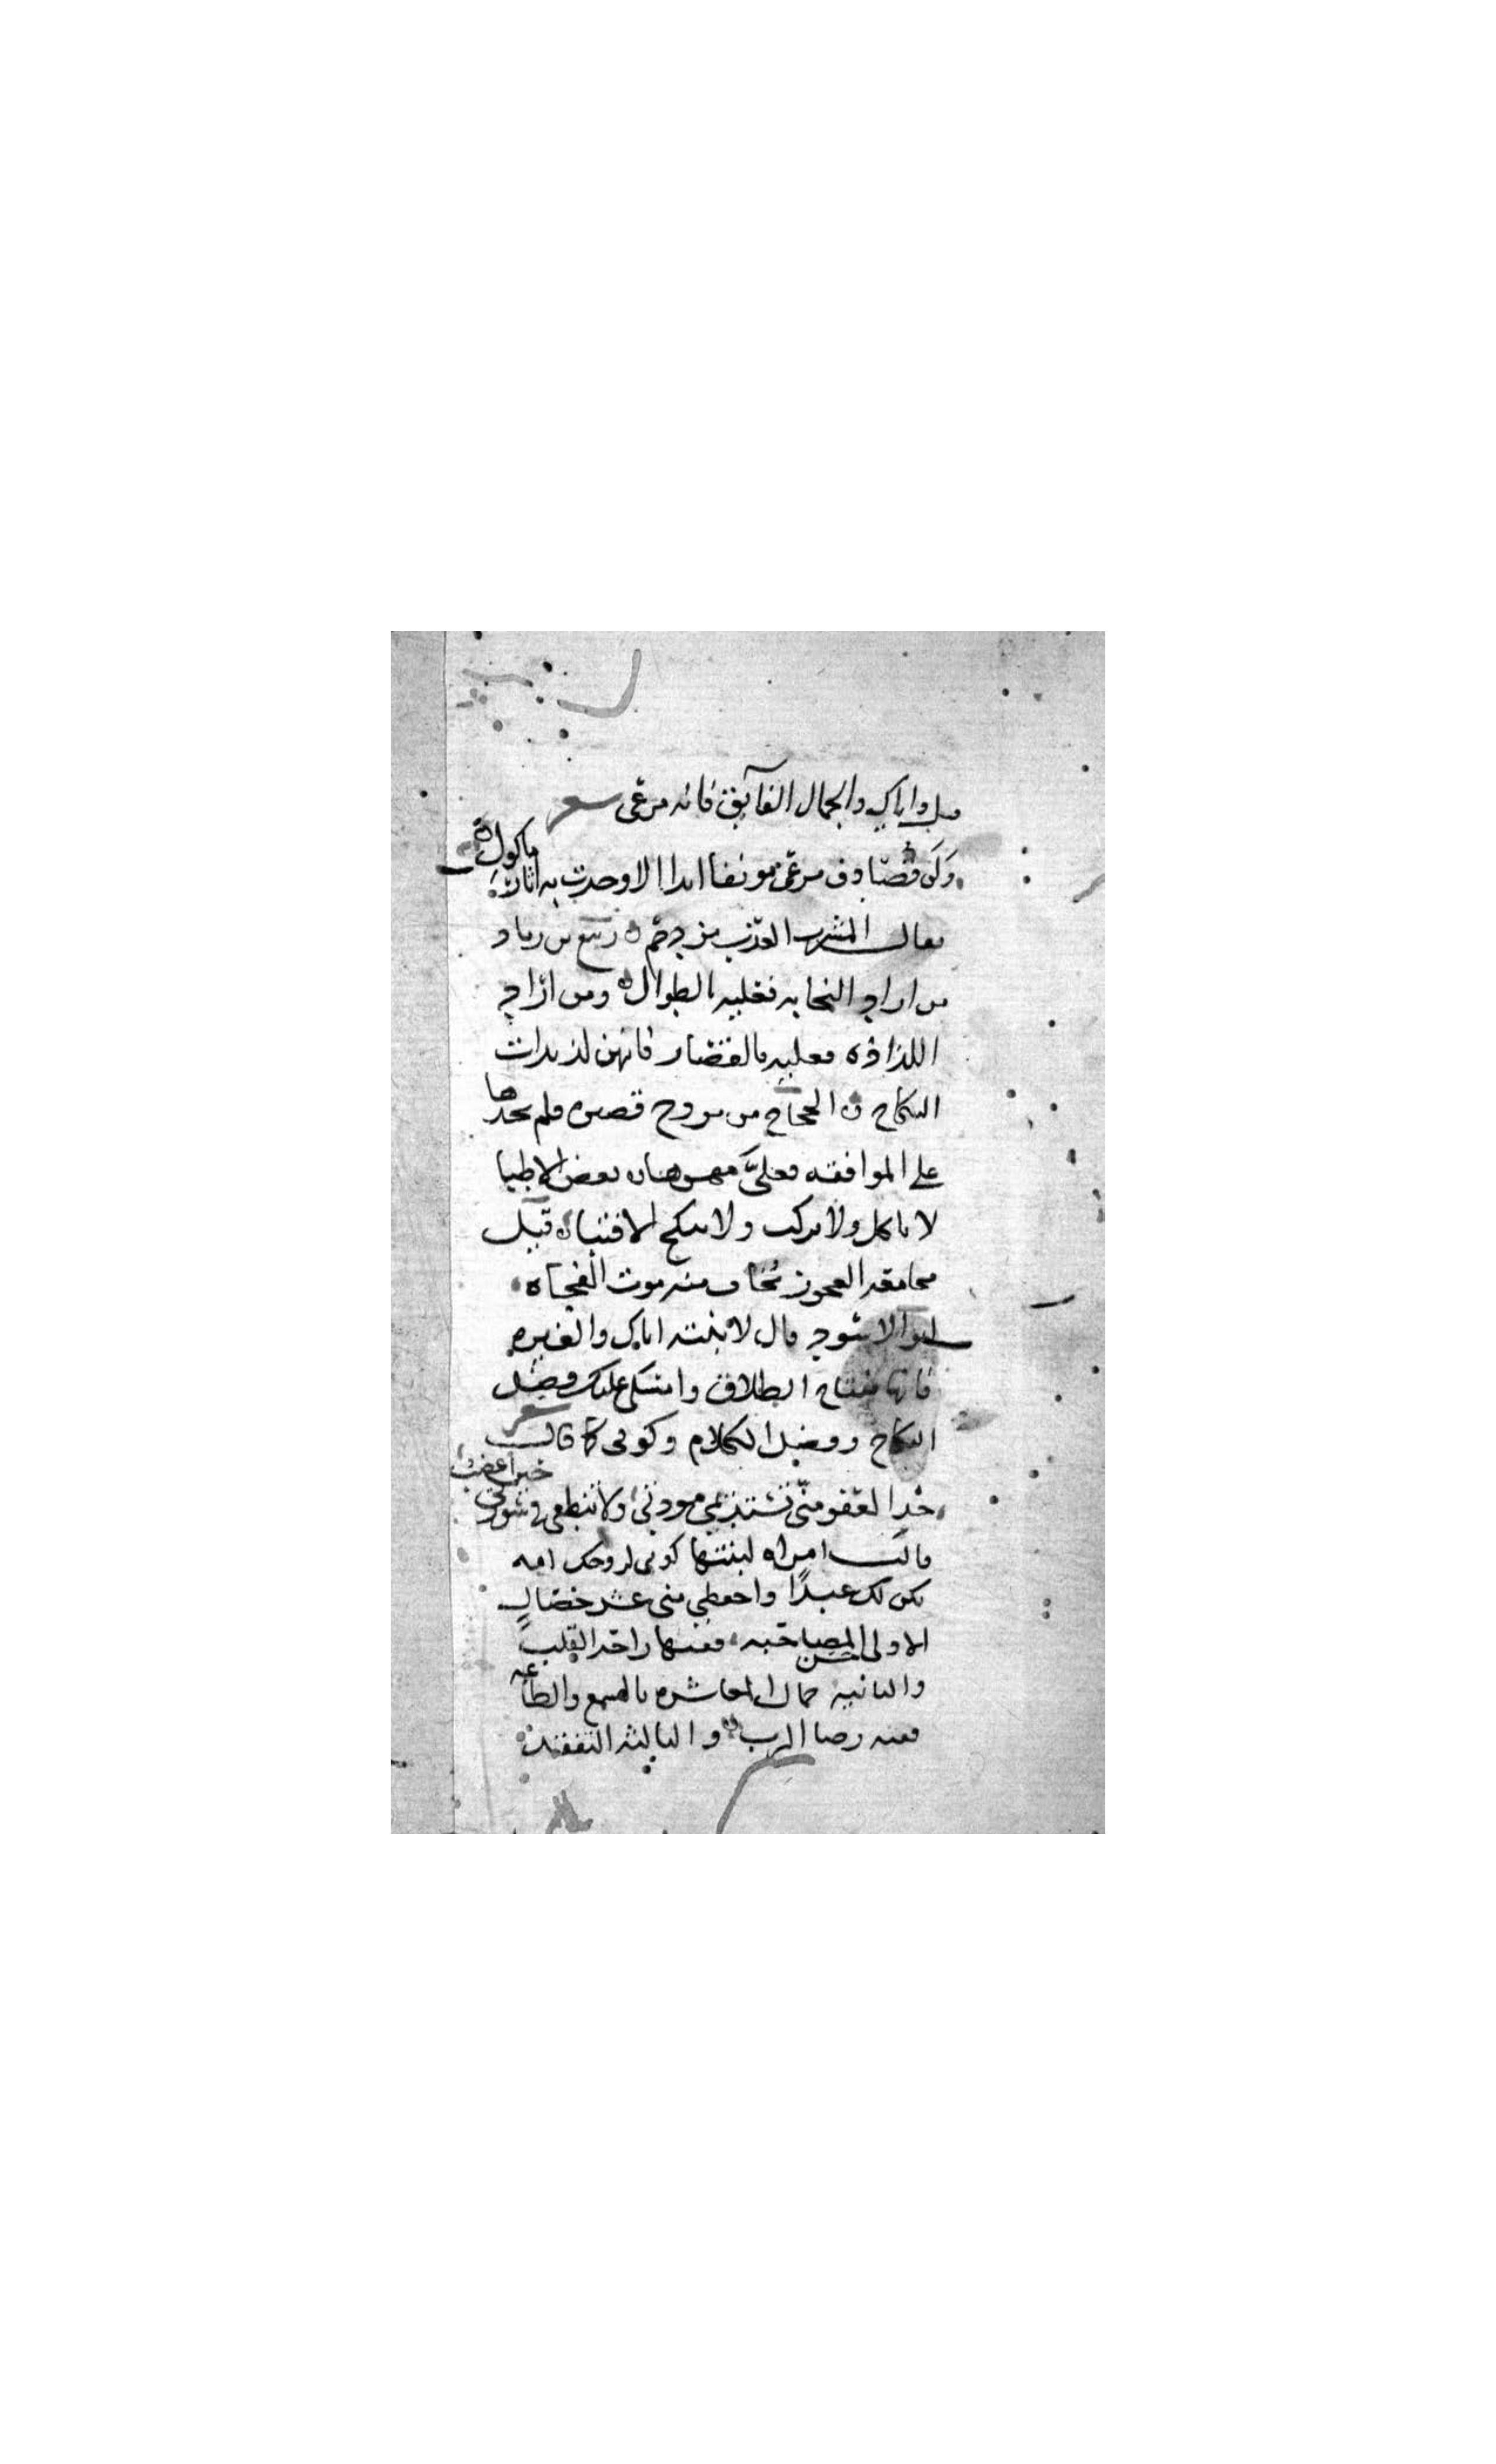 قيل واياك والجمال الفآيق فانه مرعى شعر
ولن تصادف مرعى مونقا ابدا الا وجدت به اثار ماكول
يقال المشرب العذب مزدحم ه ربيع بن زياد
من اراد النجابه فعليه بالطوال ه ومن اراد
اللذاذه فعليه بالقصار فانهن لذيذات
النكاح ه الحجاج من تزوج قصيره فلم يجدها
على الموافقه فعليَّ مهرها ه بعض الاطبا
لا تاكل ولا تركب ولا تنكح الا فتيا ه قيل
مجامعه العجوز يخاف منه موت الفجاه
ابو الاسود قال لابنته اياك والغيره
فانها مفتاح الطلاق وامسكي عليك فضل
النكاح وفضل الكلام وكوني كما قال شعر
خذ العفو مني تستديمي مودتي ولا تنطقي في سورتي حين اغضب
قالت امراه لبنتها كوني لزوجك امه
يكن لك عبدًا واحفظي مني عشر خصال
الاولى حسن المصاحبه ففيها راحة القلب
والثانيه جمال المعاشره بالسمع والطاعه
ففيه رضا الرب ه والثالثه التفقد